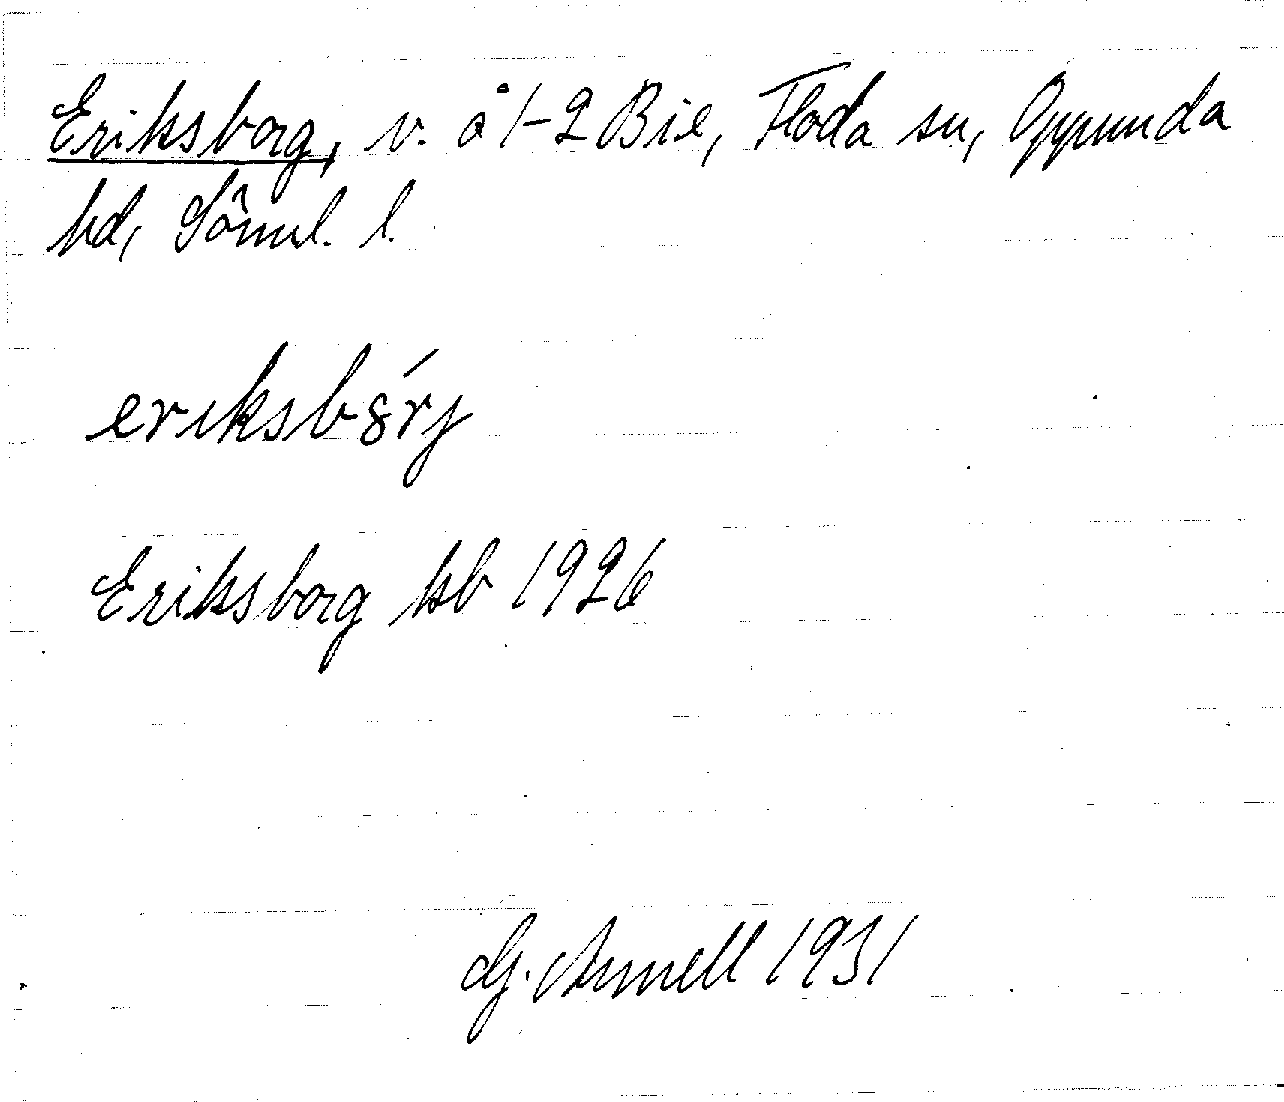 Eriksborg, v. å 1-2 Bie, Floda sn, Oppunda
hd, Söml. l.
eriksbȣ́rj
Eriksborg kb 1926
Gj. Arnell 1931